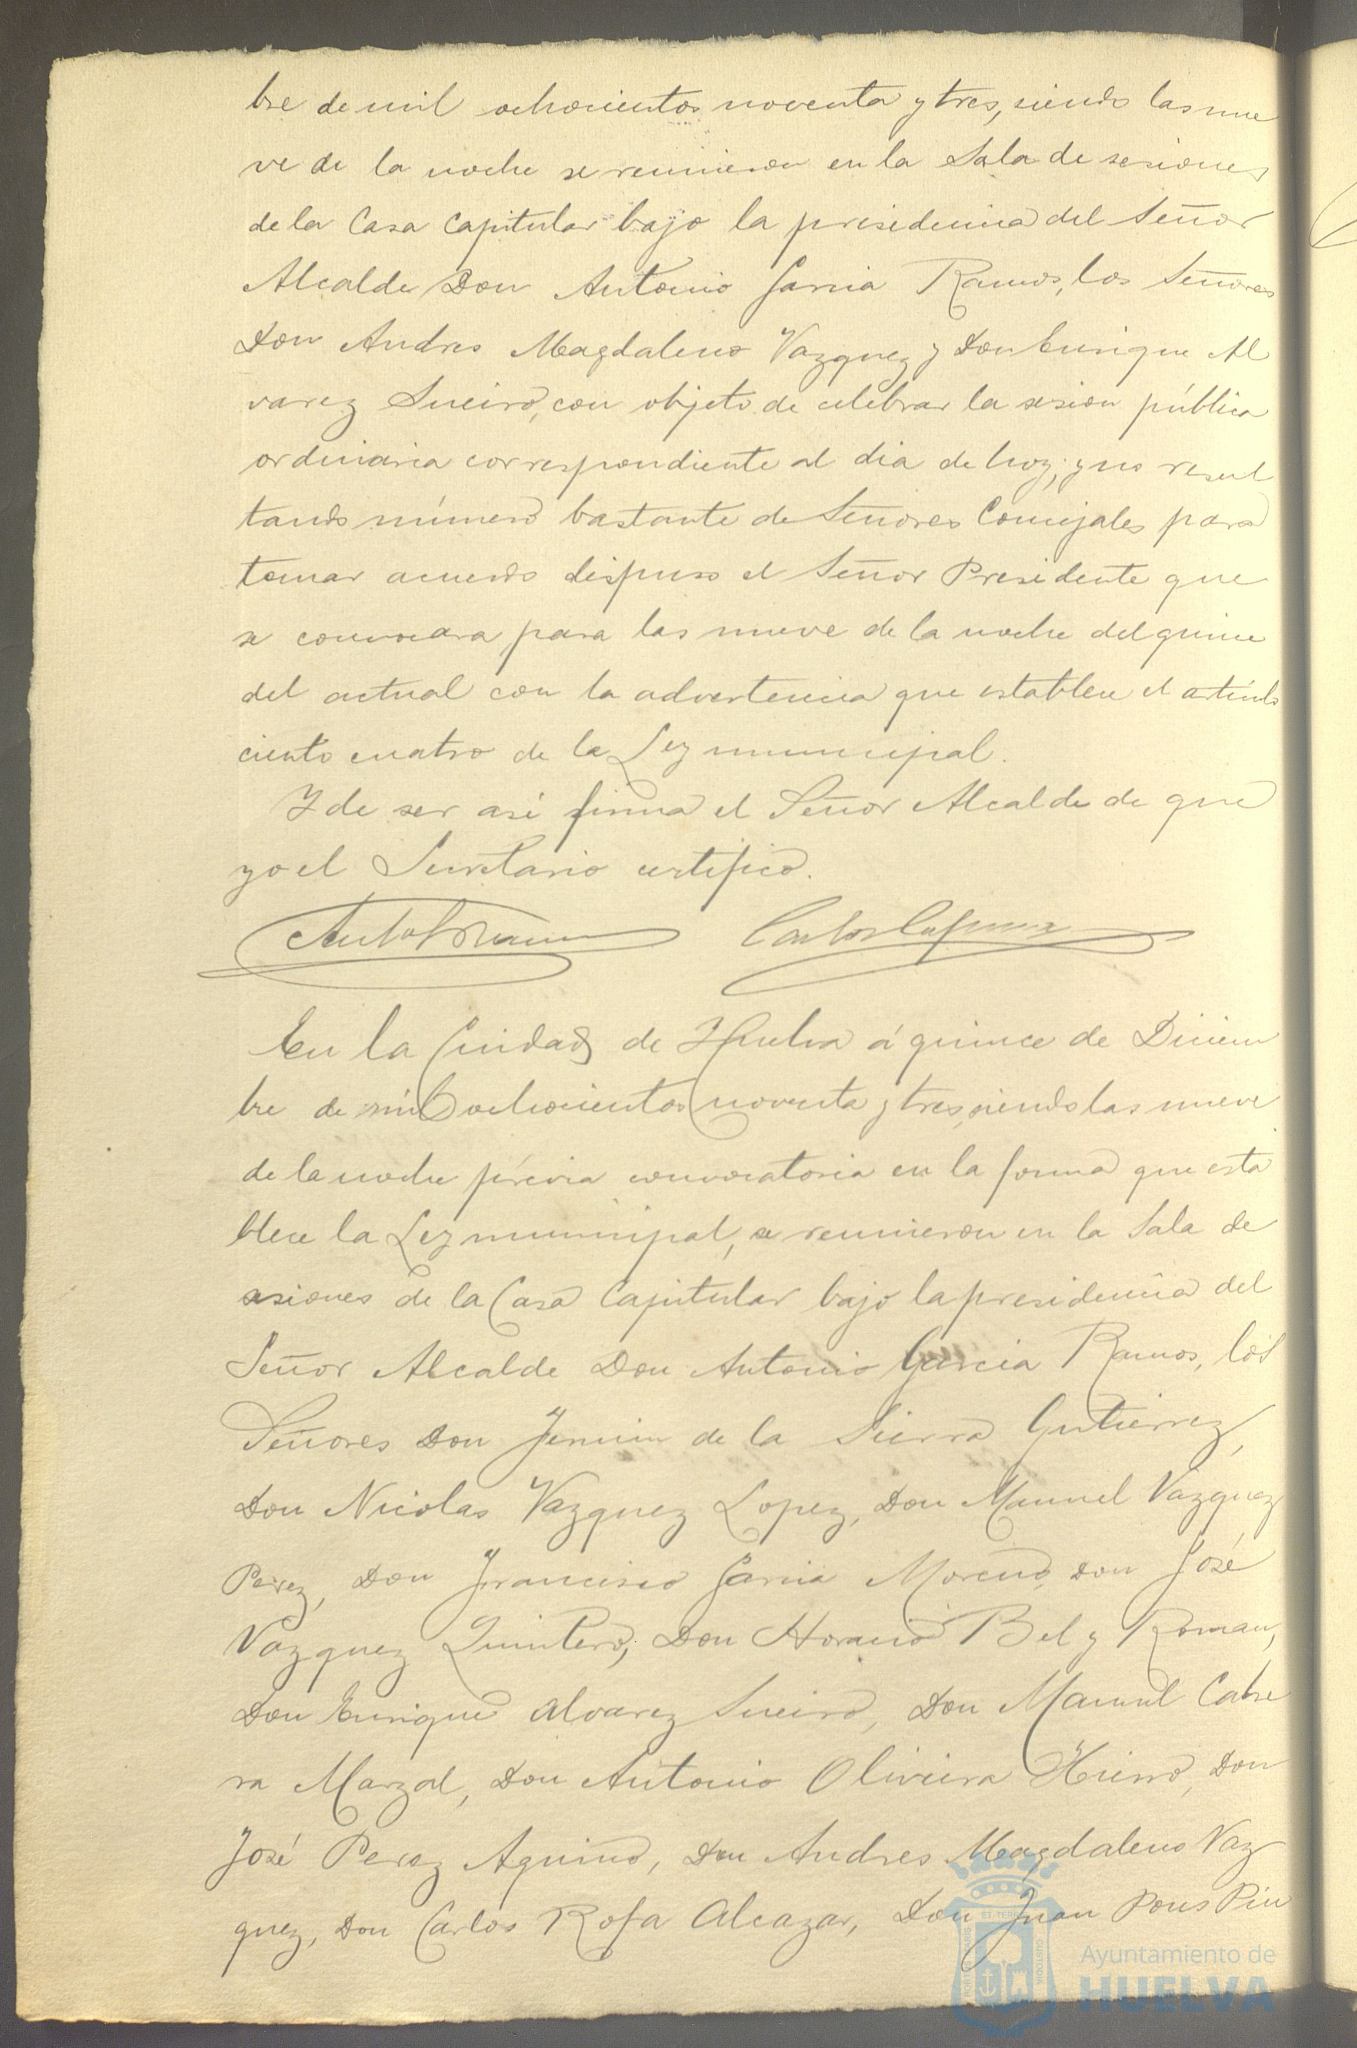 bre de mil ochocientos noventa y tres, siendo las nue
ve de la noche se reunieron en la Sala de sesiones
de la Casa Capitular bajo la presidencia del Señor
Alcalde Don Antonio Garcia Ramos, los Señores
Don Andres Magdaleno Vazquez y Don Enrique Al
varez Sueiro, con objeto de celebrar la sesion pública
ordinaria correspondiente al dia de hoy; y no resul
tando número bastante de Señores Concejales para
tomar acuerdo dispuso el Señor Presidente que
se convocara para las nueve de la noche del quince
del actual con la advertencia que establece el artículo
ciento cuatro de la Ley municipal.
Y de ser asi firma el Señor Alcalde de que
yo el Secretario certifico.
En la Ciudad de Huelva á quince de Diciem
bre de mil ochocientos noventa y tres, siendo las nueve
de la noche prévia convocatoria en la forma que esta
blece la Ley municipal, se reunieron en la Sala de
sesiones de la Casa Capitular bajo la presidencia del
Señor Alcalde Don Antonio Garcia Ramos, los
Señores Don Fermin de la Sierra Gutierrez,
Don Nicolas Vazquez Lopez, Don Manuel Vazquez
Perez, Don Francisco Garcia Moreno, Don José
Vazquez Quintero, Don Horacio Bel y Roman,
Don Enrique Alvarez Sueiro, Don Manuel Cabre
ra Marzal, Don Antonio Oliveira Hierro, Don
José Perez Aquino, Don Andres Magdaleno Vaz
quez, Don Carlos Rofa Alcazar, Don Juan Pons Pin
Ayuntamiento de
HUELVA